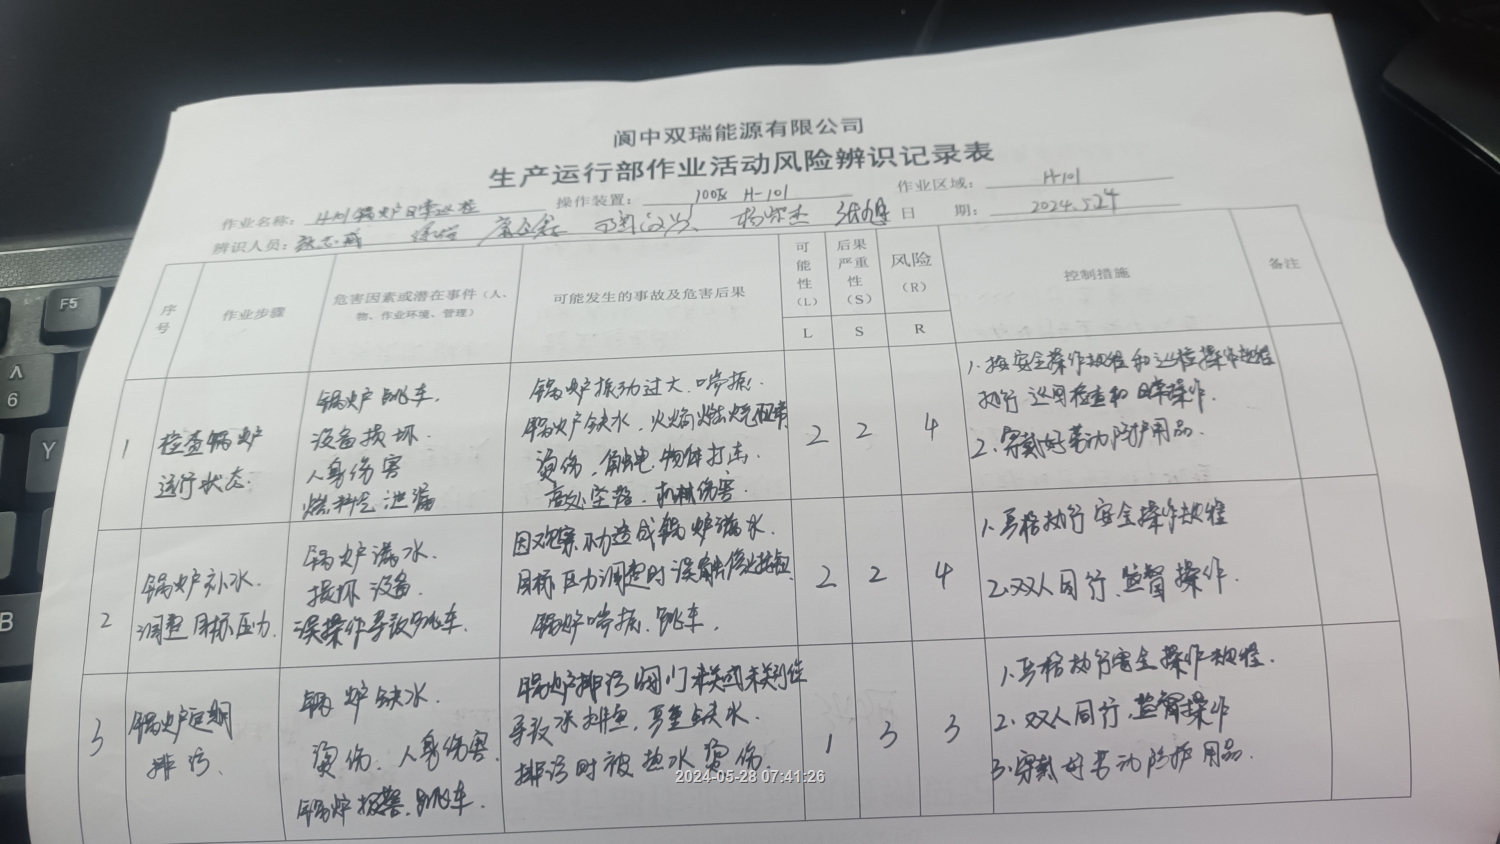 阆中双瑞能源有限公司
生产运行部作业活动风险辨识记录表
作业名称： 锅炉日常巡检 操作装置： 100区 H-101 作业区域： H-101
辨识人员： 日 期： 2024.5.24
序号 作业步骤 危害因素或潜在事件（人、物、作业环境、管理） 可能发生的事故及危害后果 可能性（L） 后果严重性（S） 风险（R） 控制措施 备注
L S R
1 检查锅炉运行状态.
锅炉跳车.
设备损坏.
人身伤害
燃料气泄漏
锅炉振动过大.喘振.
锅炉缺水，火焰燃烧异常
烫伤，触电.物体打击.
高处坠落.机械伤害.
2 2 4
1.按安全操作规程和巡检操作规程
执行巡回检查和日常操作.
2.穿戴好劳动防护用品.
2 锅炉补水.
调整目标压力.
锅炉满水.
损坏设备.
误操作导致跳车.
因观察不力造成锅炉满水.
目标压力调整时误触停止按钮
锅炉喘振.跳车.
2 2 4
1.严格执行安全操作规程
2.双人同行.监督操作.
3 锅炉定期
排污、
锅炉缺水.
烫伤.人身伤害.
锅炉报警.跳车.
锅炉排污阀门未关或未关到位
导致水排空，严重缺水.
排污时被热水烫伤.
1 3 3
1.严格执行安全操作规程.
2.双人同行.监督操作
3.穿戴好劳动防护用品.
2024-05-28 07:41:26
F5
6
Y
B